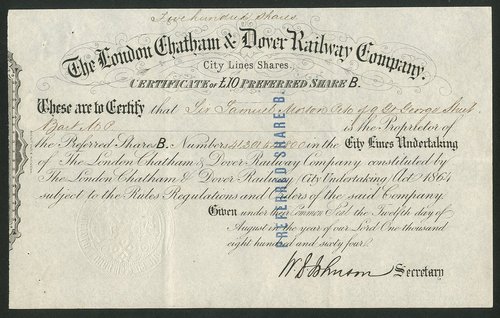 Five hundred Shares
The London Chatham & Dover Railway Company.
City Lines Shares.
Certificate of £10 Preferred Share B.
These are to Certify that Sir Samuel Morton Peto of 9 Gt George Street
Bart M.P. is the Proprietor of
the Preferred Shares B. Numbers in the City Lines Undertaking
of The London Chatham & Dover Railway Company constituted by
The London Chatham & Dover Railway (City Undertaking Act 1864
subject to the Rules Regulations and Orders of the said Company.
Given under their Common Seal the Twelfth day of
August in the year of our Lord One thousand
eight hundred and sixty four.
W. E. Johnson Secretary
PREFERRED SHARE B.